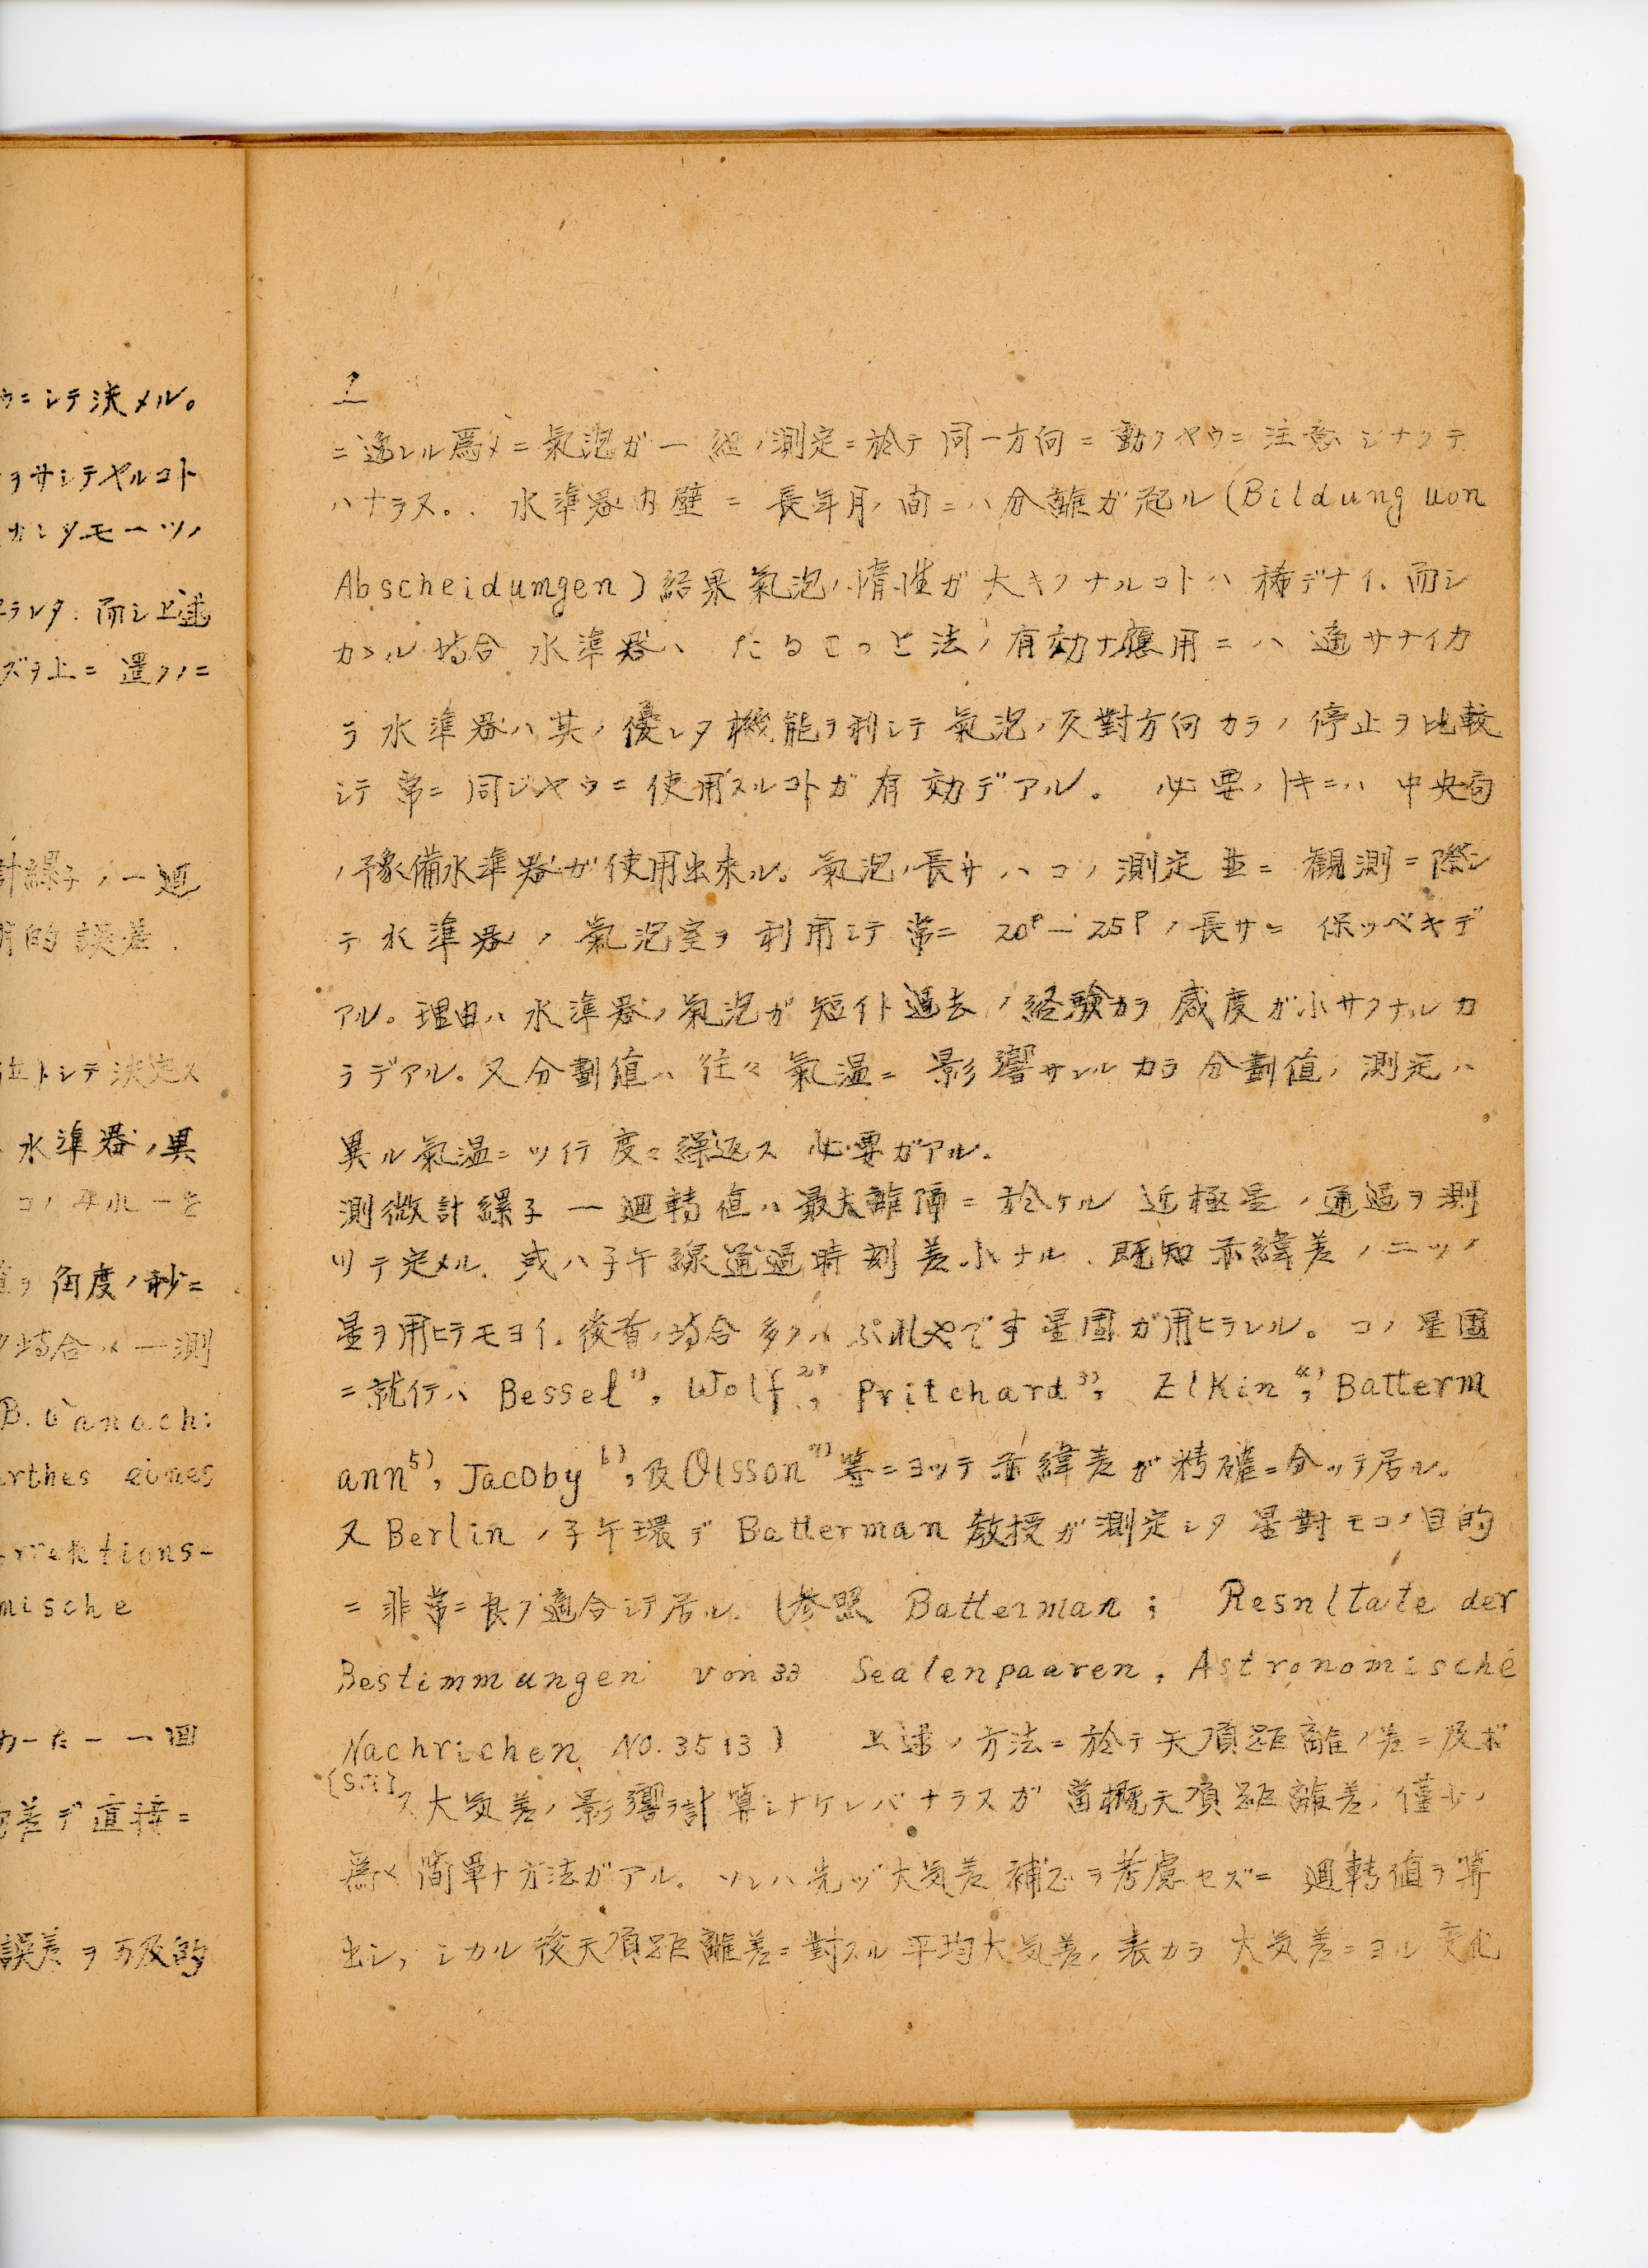 ウニシテ決メル。
ヲサシテヤルコト
カシタモーツノ
ヱラレタ．而シ上述
ズヲ上ニ置クノニ
計螺子ノ一週
的誤差．
位トシテ決定ス
水準器ノ異
コノ
ヲ角度ノ秒ニ
場合ハ一測
B. Wanach:
erthes eines
rrektions-
mische
わーたー一回
差デ直接ニ
誤差ヲ可及的
7
ニ逸レル爲メニ氣泡ガ一組ノ測定ニ於テ同一方向ニ動クヤウニ注意シナクテ
ハナラヌ。．水準器内壁ニ長年月ノ間ニハ分離ガ起ル(Bildung uon
Abscheidumgen)結果氣泡ノ惰性ガ大キクナルコトハ稀デナイ．而シ
カゝル場合水準器ハたるこっと法ノ有効ナ應用ニハ適サナイカ
ラ水準器ハ其ノ優レタ機能ヲ利シテ氣泡ノ反對方向カラノ停止ヲ比較
シテ常ニ同ジヤウニ使用スルコトガ有効デアル。必要ノトキニハ中央局
ノ豫備水準器ガ使用出來ル。氣泡ノ長サハコノ測定並ニ観測ニ際シ
テ水準器ノ氣泡室ヲ利用シテ常ニ 20ᴾ—25ᴾノ長サニ保ツベキデ
アル。理由ハ水準器ノ氣泡ガ短イト過去ノ経験カラ感度ガ小サクナルカ
ラデアル。又分劃値ハ往々氣温ニ影響サレルカラ分劃値ノ測定ハ
異ル氣温ニツイテ度々繰返ス必要ガアル．
測微計螺子一週轉値ハ最大離隔ニ於ケル近極星ノ通過ヲ測
ツテ定メル．或ハ子午線通過時刻差小ナル．既知赤緯差ノ二ツノ
星ヲ用ヒテモヨイ．後者ノ場合多クハぷれやです星團ガ用ヒラレル。コノ星團
ニ就イテハ Bessel¹⁾, Wolf²⁾, Pritchard³⁾, Elkin⁴⁾, Batterm
ann⁵⁾, Jacoby⁶⁾,及Olsson⁷⁾等ニヨッテ赤緯差ガ精確ニ分ッテ居ル。
又Berlinノ子午環デBatterman教授ガ測定シタ星對モコノ目的
ニ非常ニ良ク適合シテ居ル．(参照 Batterman; Resnltate der
Bestimmungen von 33 Sealenpaaren, Astronomische
Nachrichen NO. 3513) 上述ノ方法ニ於テ天頂距離ノ差ニ及ボ
ス大気差ノ影響ヲ計算シナケレバナラヌガ當概天頂距離差ノ僅少ノ
爲メ簡單ナ方法ガアル。ソレハ先ヅ大気差補正ヲ考慮セズニ週轉値ヲ算
出シ，シカル後天頂距離差ニ對スル平均大気差ノ表カラ大気差ニヨル変化